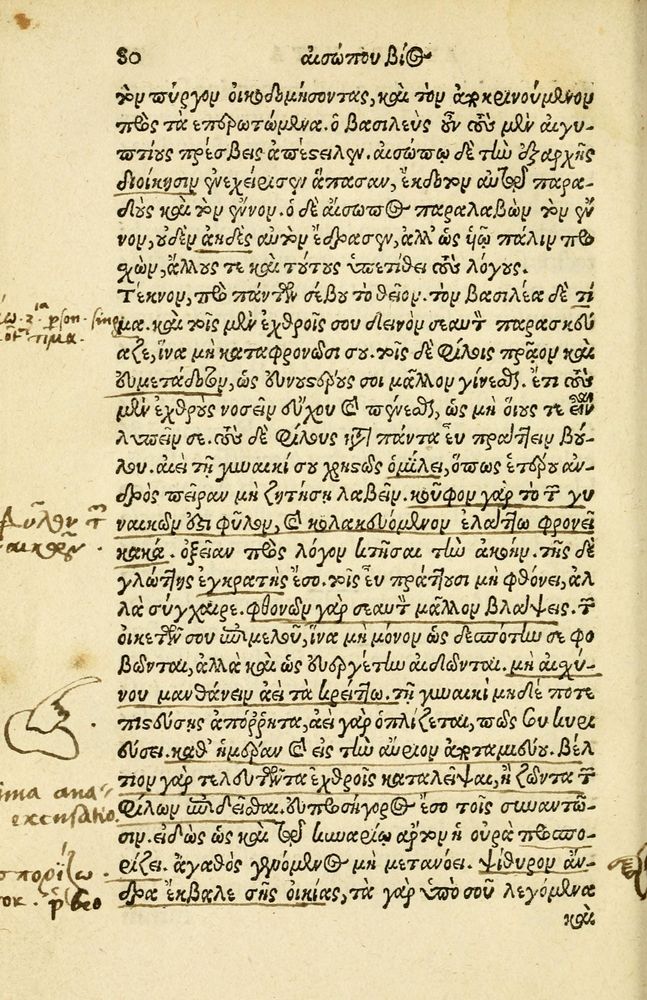 80 αἰσώπου βίος
τὸν πύργον οἰκοδομήσοντας, καὶ τὸν ἀποκρινούμενον
πρὸς τὰ ἐπερωτώμενα. ὁ βασιλεὺς οὖν τοὺς μὲν αἰγυ-
πτίους πρέσβεις ἀπέστειλεν. αἰσώπῳ δὲ τὴν ἐξαρχῆς
διοίκησιν ἐνεχείρισεν ἅπασαν, ἔκδοτον αὐτῷ παρα-
δοὺς καὶ τὸν ἔννον. ὁ δὲ αἴσωπος παραλαβὼν τὸν ἔν
νον, οὐδὲν ἀηδὲς αὐτὸν ἔδρασεν, ἀλλ' ὡς υἱῷ πάλιν προ
σχὼν, ἄλλους τε καὶ τούτους ὑπετίθει τοὺς λόγους.
Τέκνον, πρὸ πάντων σέβου τὸ θεῖον. τὸν βασιλέα δὲ τί
μα. καὶ τοῖς μὲν ἐχθροῖς σου δεινὸν σεαυτὸν παρασκεύ
αζε, ἵνα μὴ καταφρονῶσί σου. τοῖς δὲ φίλοις πρᾶον καὶ
εὐμετάδοτον, ὡς εὐνουστέρους σοι μᾶλλον γίνεσθαι. ἔτι τοὺς
μὲν ἐχθροὺς νοσεῖν εὔχου καὶ πένεσθαι, ὡς μὴ οἵους τε εἶναι
λυπεῖν σε. τοὺς δὲ φίλους κατὰ πάντα εὖ πράττειν βού
λου. ἀεὶ τῇ γυναικί σου χρηστῶς ὁμίλει, ὅπως ἑτέρου ἀν-
δρὸς πεῖραν μὴ ζητήσῃ λαβεῖν. κοῦφον γὰρ τὸ τῶν γυ
ναικῶν ἐστι φῦλον, καὶ κολακευόμενον ἐλάττω φρονεῖ
κακά. ὀξεῖαν πρὸς λόγον κτῆσαι τὴν ἀκοήν. τῆς δὲ
γλώττης ἐγκρατὴς ἔσο. τοῖς εὖ πράττουσι μὴ φθόνει, ἀλ
λὰ σύγχαιρε. φθονῶν γὰρ σεαυτὸν μᾶλλον βλάψεις. τῶν
οἰκετῶν σου ἐπιμελοῦ, ἵνα μὴ μόνον ὡς δεσπότην σε φο
βῶνται, ἀλλὰ καὶ ὡς εὐεργέτην αἰδῶνται. μὴ αἰσχύ-
νου μανθάνειν ἀεὶ τὰ κρείττω. τῇ γυναικὶ μηδέ ποτε
πιστεύσῃς ἀπόῤῥητα, ἀεὶ γὰρ ὁπλίζεται, πῶς σου κυρι
εύσει. καθ' ἡμέραν καὶ εἰς τὴν αὔριον ἀποταμιεύου. βέλ
τιον γὰρ τελευτῶντα ἐχθροῖς καταλεῖψαι, ἢ ζῶντα τῶν
φίλων ἐπιδεῖσθαι. εὐπροσήγορος ἔσο τοῖς συναντῶ-
σιν. εἰδὼς ὡς καὶ τῷ κυναρίῳ ἄρτον ἡ οὐρὰ προσπο-
ρίζει. ἀγαθὸς γενόμενος μὴ μετανόει. ψίθυρον ἄν-
δρα ἔκβαλε σῆς οἰκίας, τὰ γὰρ ὑπὸ σοῦ λεγόμενα
καὶ
τιμα.
ima ana-
excusatio.